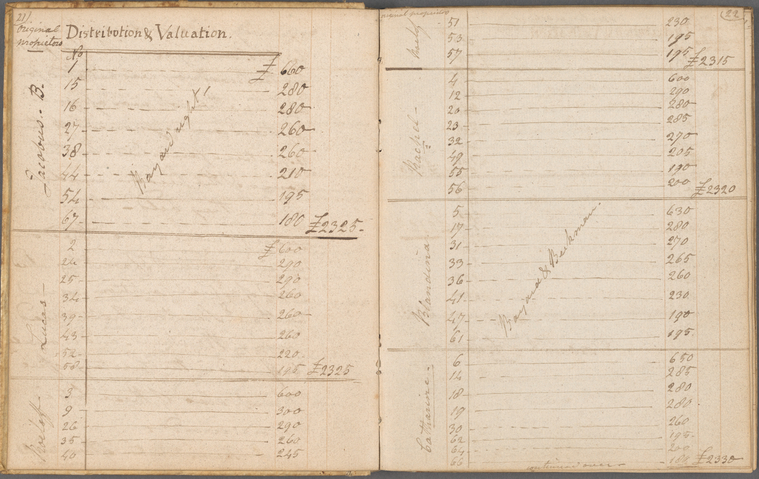 21).
Original proprietors
Distribution & Valuation.
No
Jacobus. B.
1 £ 660
15 280
16 280
27 260
38 260
44 210
54 195
67 180 £2325-
Bayard right
Lucas-
2 £600
24 290
25 290
34 260
39 260
43 260
52 220
195 £2325
Roeloff-
3 600
9 300
26 290
35 260
40 245
22
original proprietors
51 230
53 195
57 195 £2315
Rachel-
4 600
12 290
20 280
23 285
32 270
49 205
55 190
56 200 £2320
Blandina
5 630
17 280
31 270
33 265
36 260
41 230
47 190
61 195
Bayard & Beekman.
Catharine-
6 650
14 285
18 280
19 280
30 260
62 195
64 200
65 180 £2330
continued over-